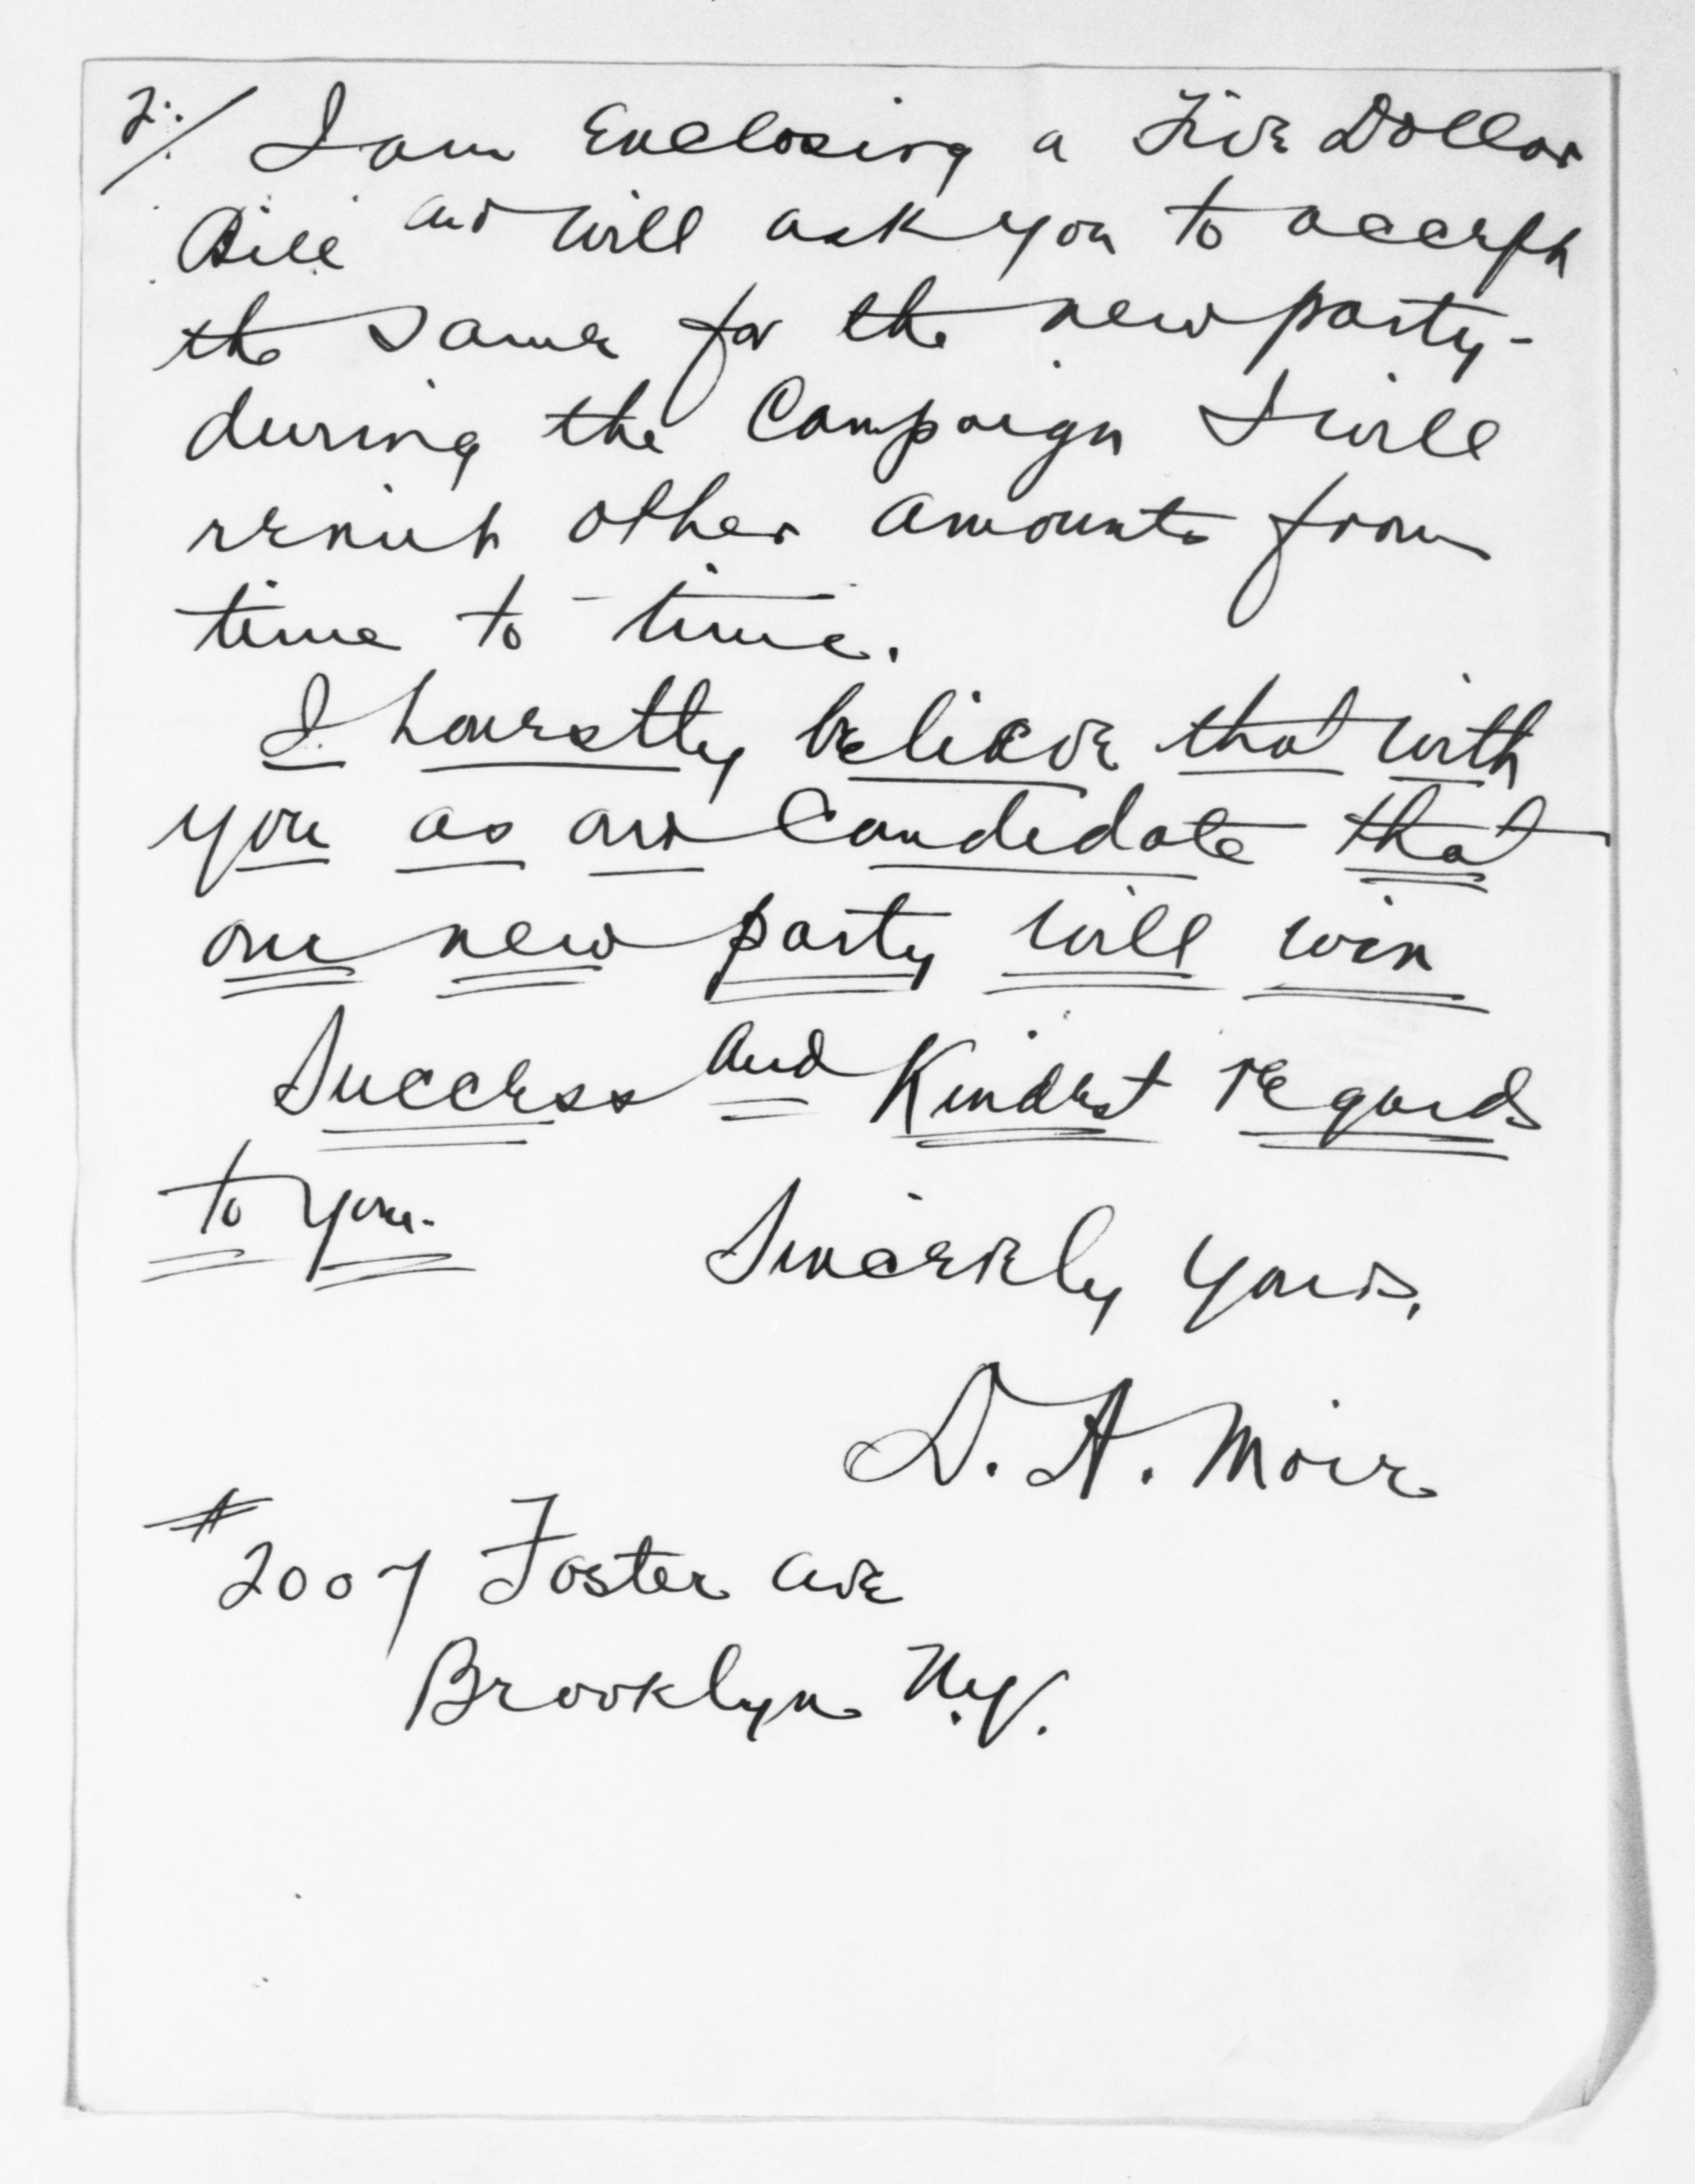 2:/ I am Enclosing a Five Dollar
Bill and will ask you to accept
the same for the new party-
during the Campaign I will
remit other amounts from
time to time.
I honestly believe that with
you as our Candidate that
our new party will win
Success and Kindest regards
to you.
Sincerely yours,
D. A. Moir
# 2007 Foster Ave
Brooklyn N.Y.